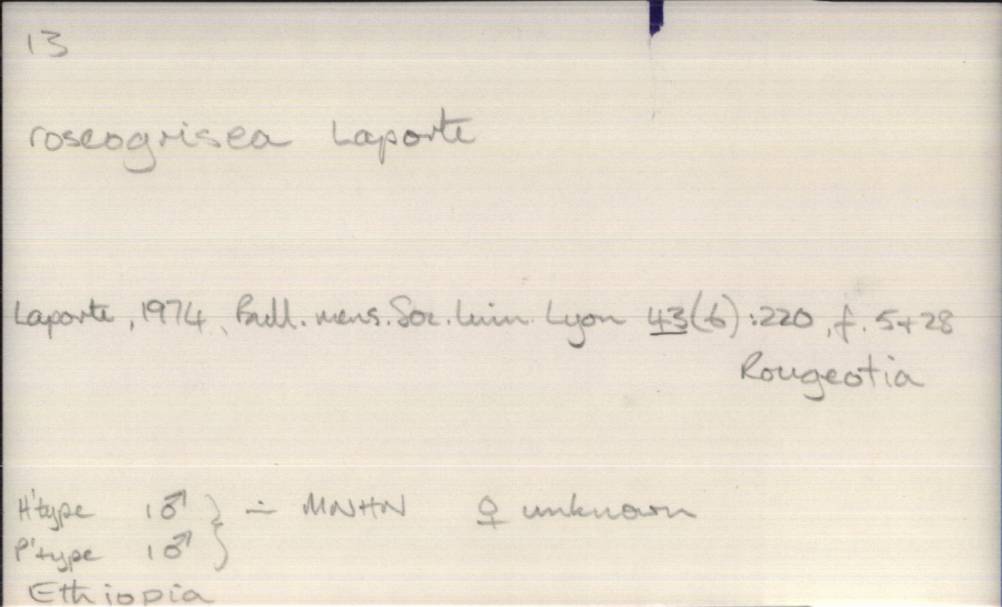 13
roseogrisea Laporte
Laporte, 1974, Bull. mens. Soc. linn. Lyon 43(6): 220, f. 5+28
Rougeotia
H'type 1♂ } ∸ MNHN ♀ unknown
P'type 1♂ }
Ethiopia